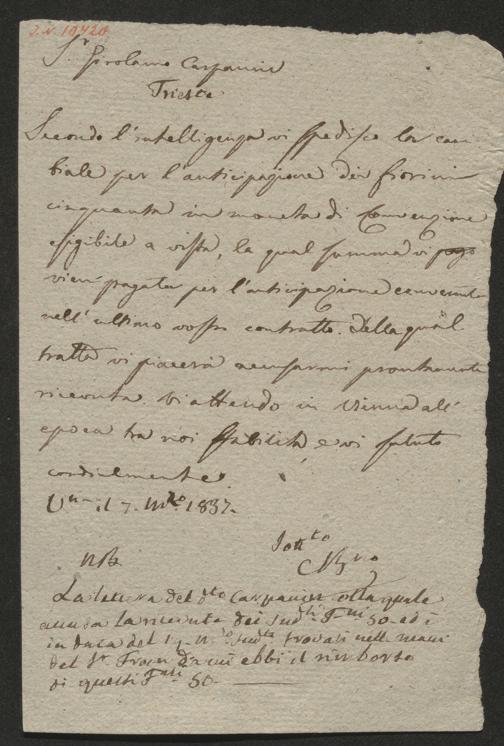 J. N. 10420
Sr. Girolamo Carpanin
Trieste
Secondo l'intelligenza vi spedisco la cam-
biale per l'anticipazione dei fiorini
cinquanta in moneta di Convenzione
esigibile a vista, la qual summa vi pago
vien pagata per l'anticipazione convenuta
nell'ultimo vostro contratto. Della qual
tratta vi piacerà accusarmi prontamente
ricevuta. Vi attendo in Vienna all'
epoca tra noi stabilita, e vi saluto
cordialmente.
il 7. 1837.
Sottto
NB
La lettera del dto Carpanin colla quale
accusa la ricevuta dei sudti Fni 50 ed è
in data del trovasi nelle mani
del Sr. da cui ebbi il rimborso
di questi Fni 50.